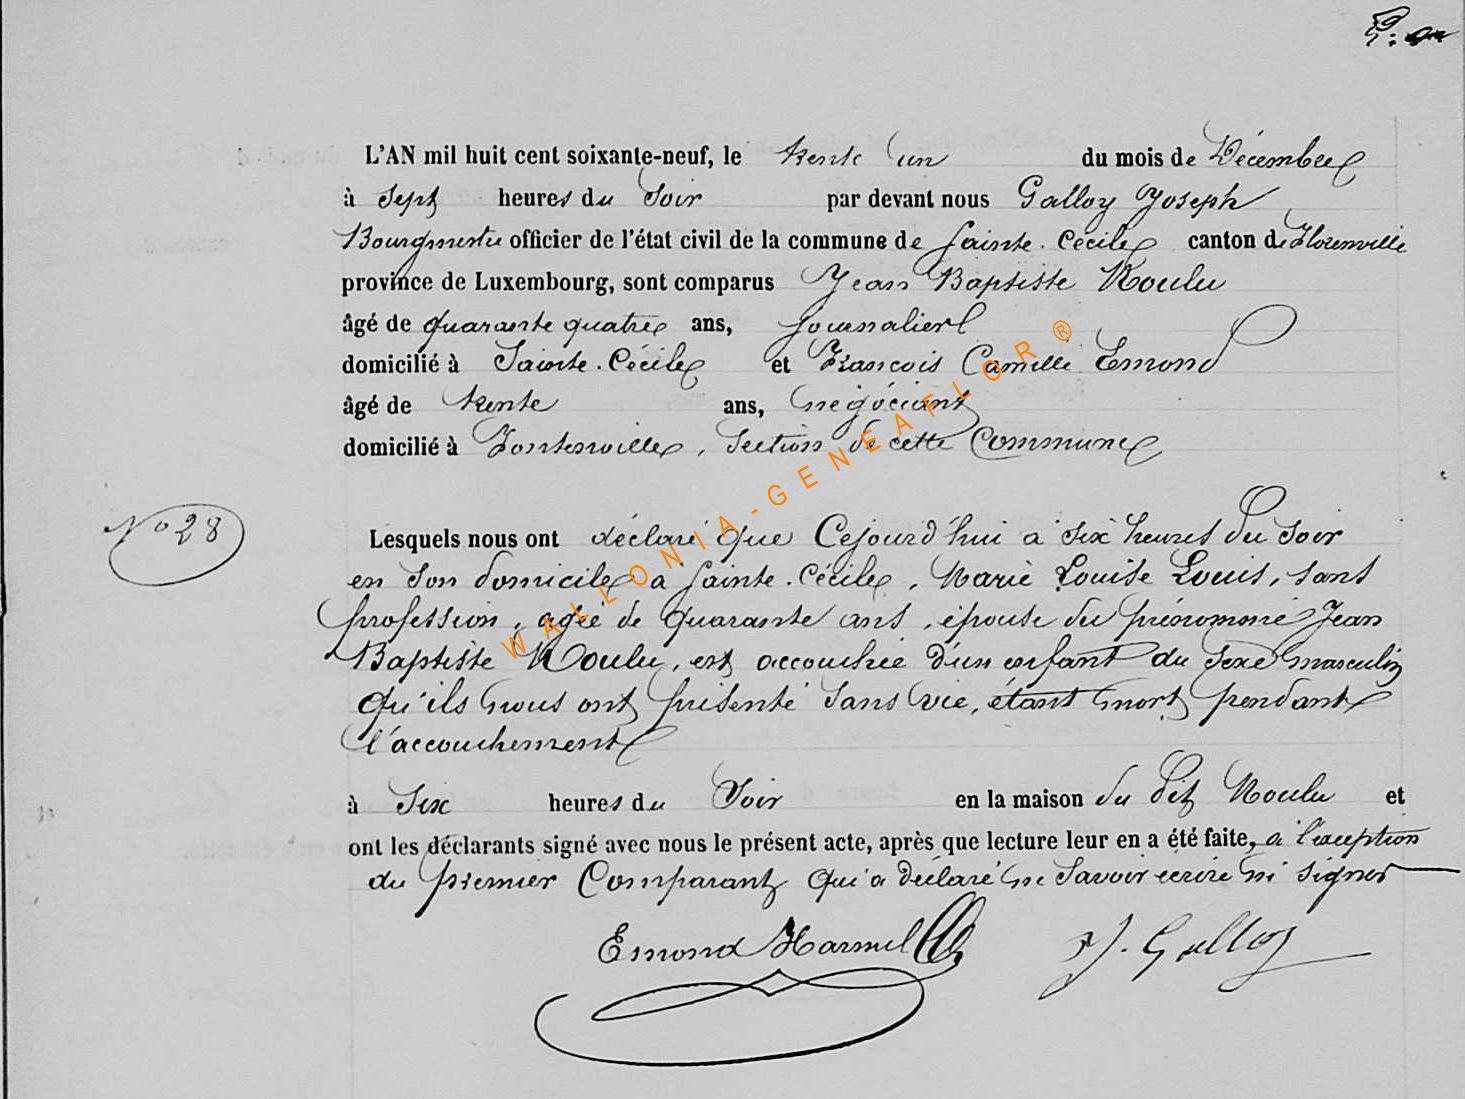 L'AN mil huit cent soixante-neuf, le trente un du mois de Décembre
à Sept heures du Soir par devant nous Galloy Joseph
Bourgmestre officier de l'état civil de la commune de Sainte-Cécile canton de Florenville
province de Luxembourg, sont comparus Jean Baptiste Noulu
âgé de quarante quatre ans, journalier
domicilié à Sainte-Cécile et François Camille Emond
âgé de trente ans, négociant
domicilié à Fontenoille, Section de cette Commune
N° 28
Lesquels nous ont déclaré que Cejourd'hui à six heures du Soir
en Son domicile à Sainte-Cécile, Marie Louise Louis, sans
profession, agée de quarante ans, épouse du prénommé Jean
Baptiste Noulu, est accouchée d'un enfant du sexe masculin
qu'ils nous ont présenté Sans vie, étant mort pendant
l'accouchement
à Six heures du Soir en la maison du dit Noulu et
ont les déclarants signé avec nous le présent acte, après que lecture leur en a été faite, a l'exception
du premier Comparant qui a déclaré ne Savoir écrire ni signer
Emond Harmel J. Galloy
WALLONIA-GENEAFLOR®